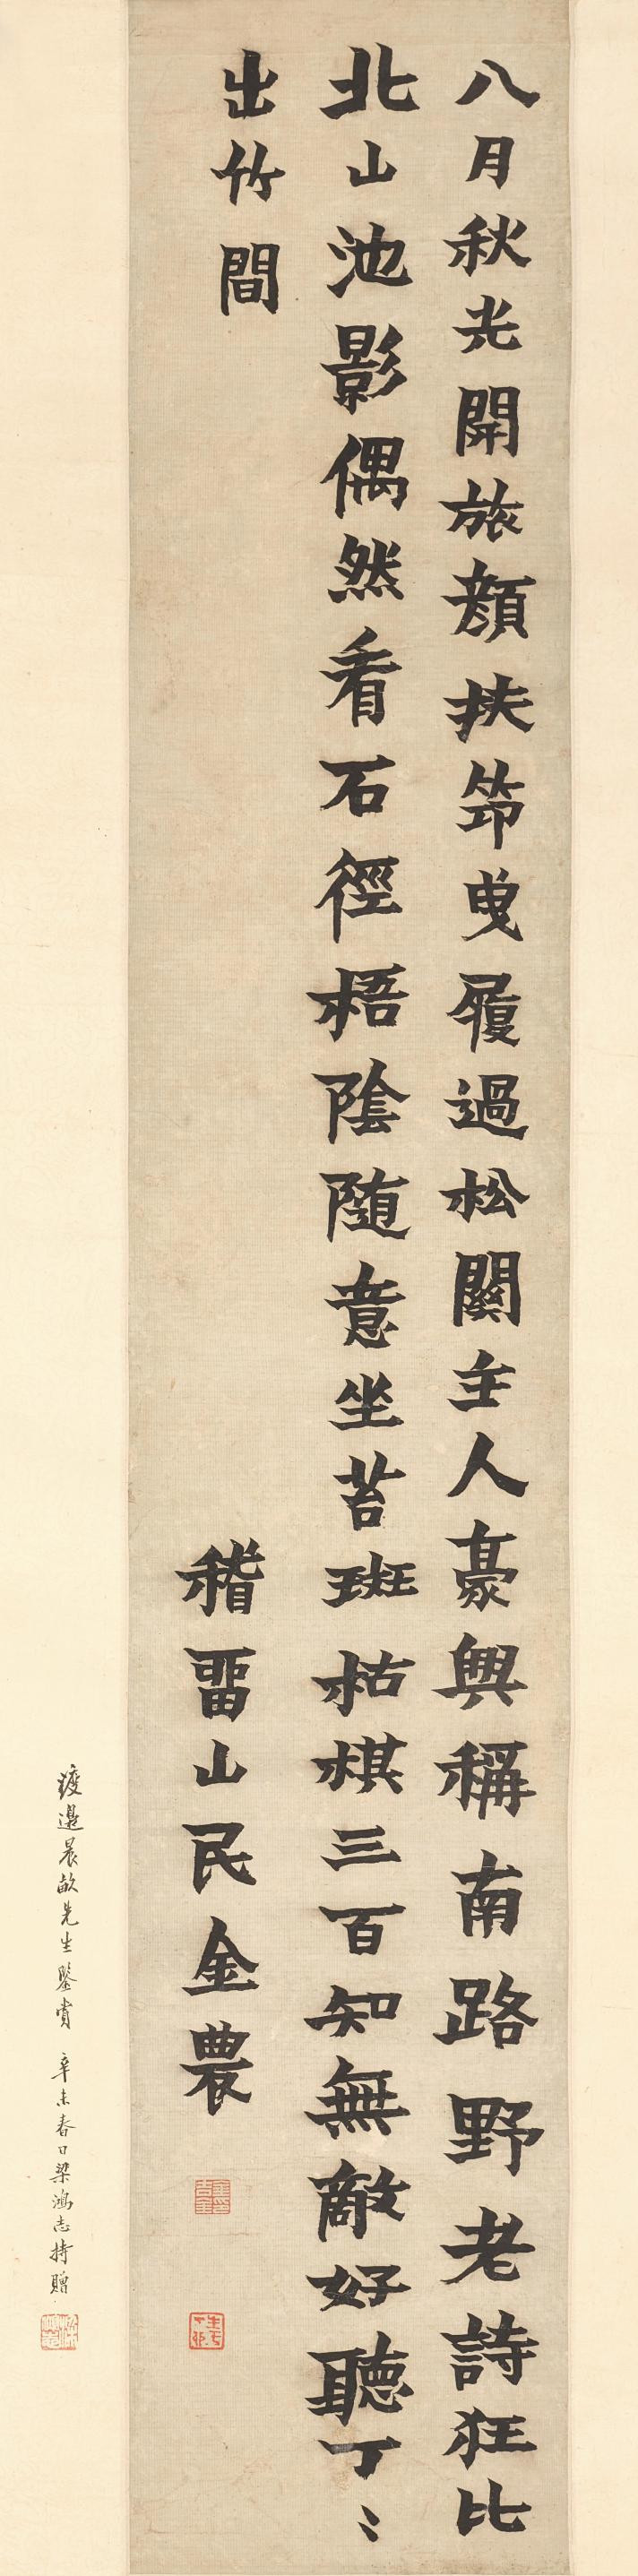 八月秋光開旅顏扶筇曳履過松關主人豪興稱南路野老詩狂比
北山池影偶然看石徑梧陰随意坐苔斑枯棋三百知無敵好聽丁〻
出竹間
稽畱山民金農
渡邊晨畝先生鑒賞 辛未春日梁鴻志持贈